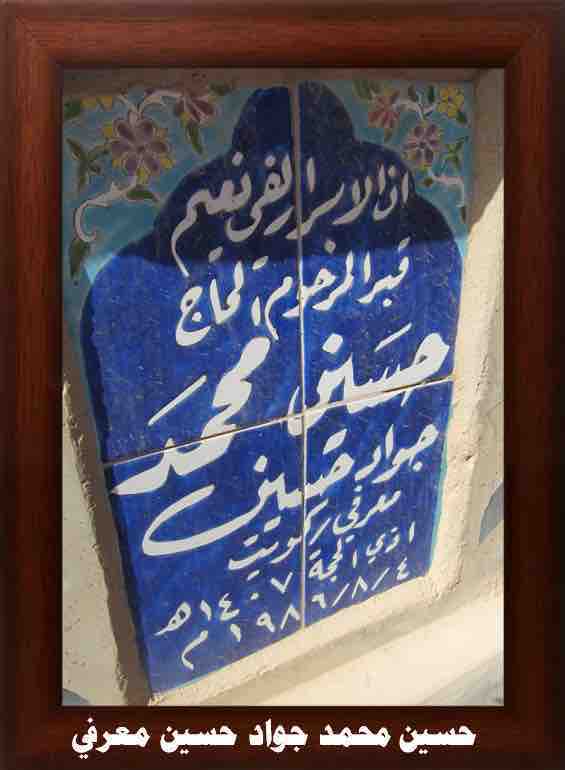 ان الابرار لفي نعيم
قبر المرحوم الحاج
حسين محمد
جواد حسين
معرفي كويت
١ ذي الحجة ١٤٠٧هـ
١٩٨٦/٨/٤ م
حسين محمد جواد حسين معرفي